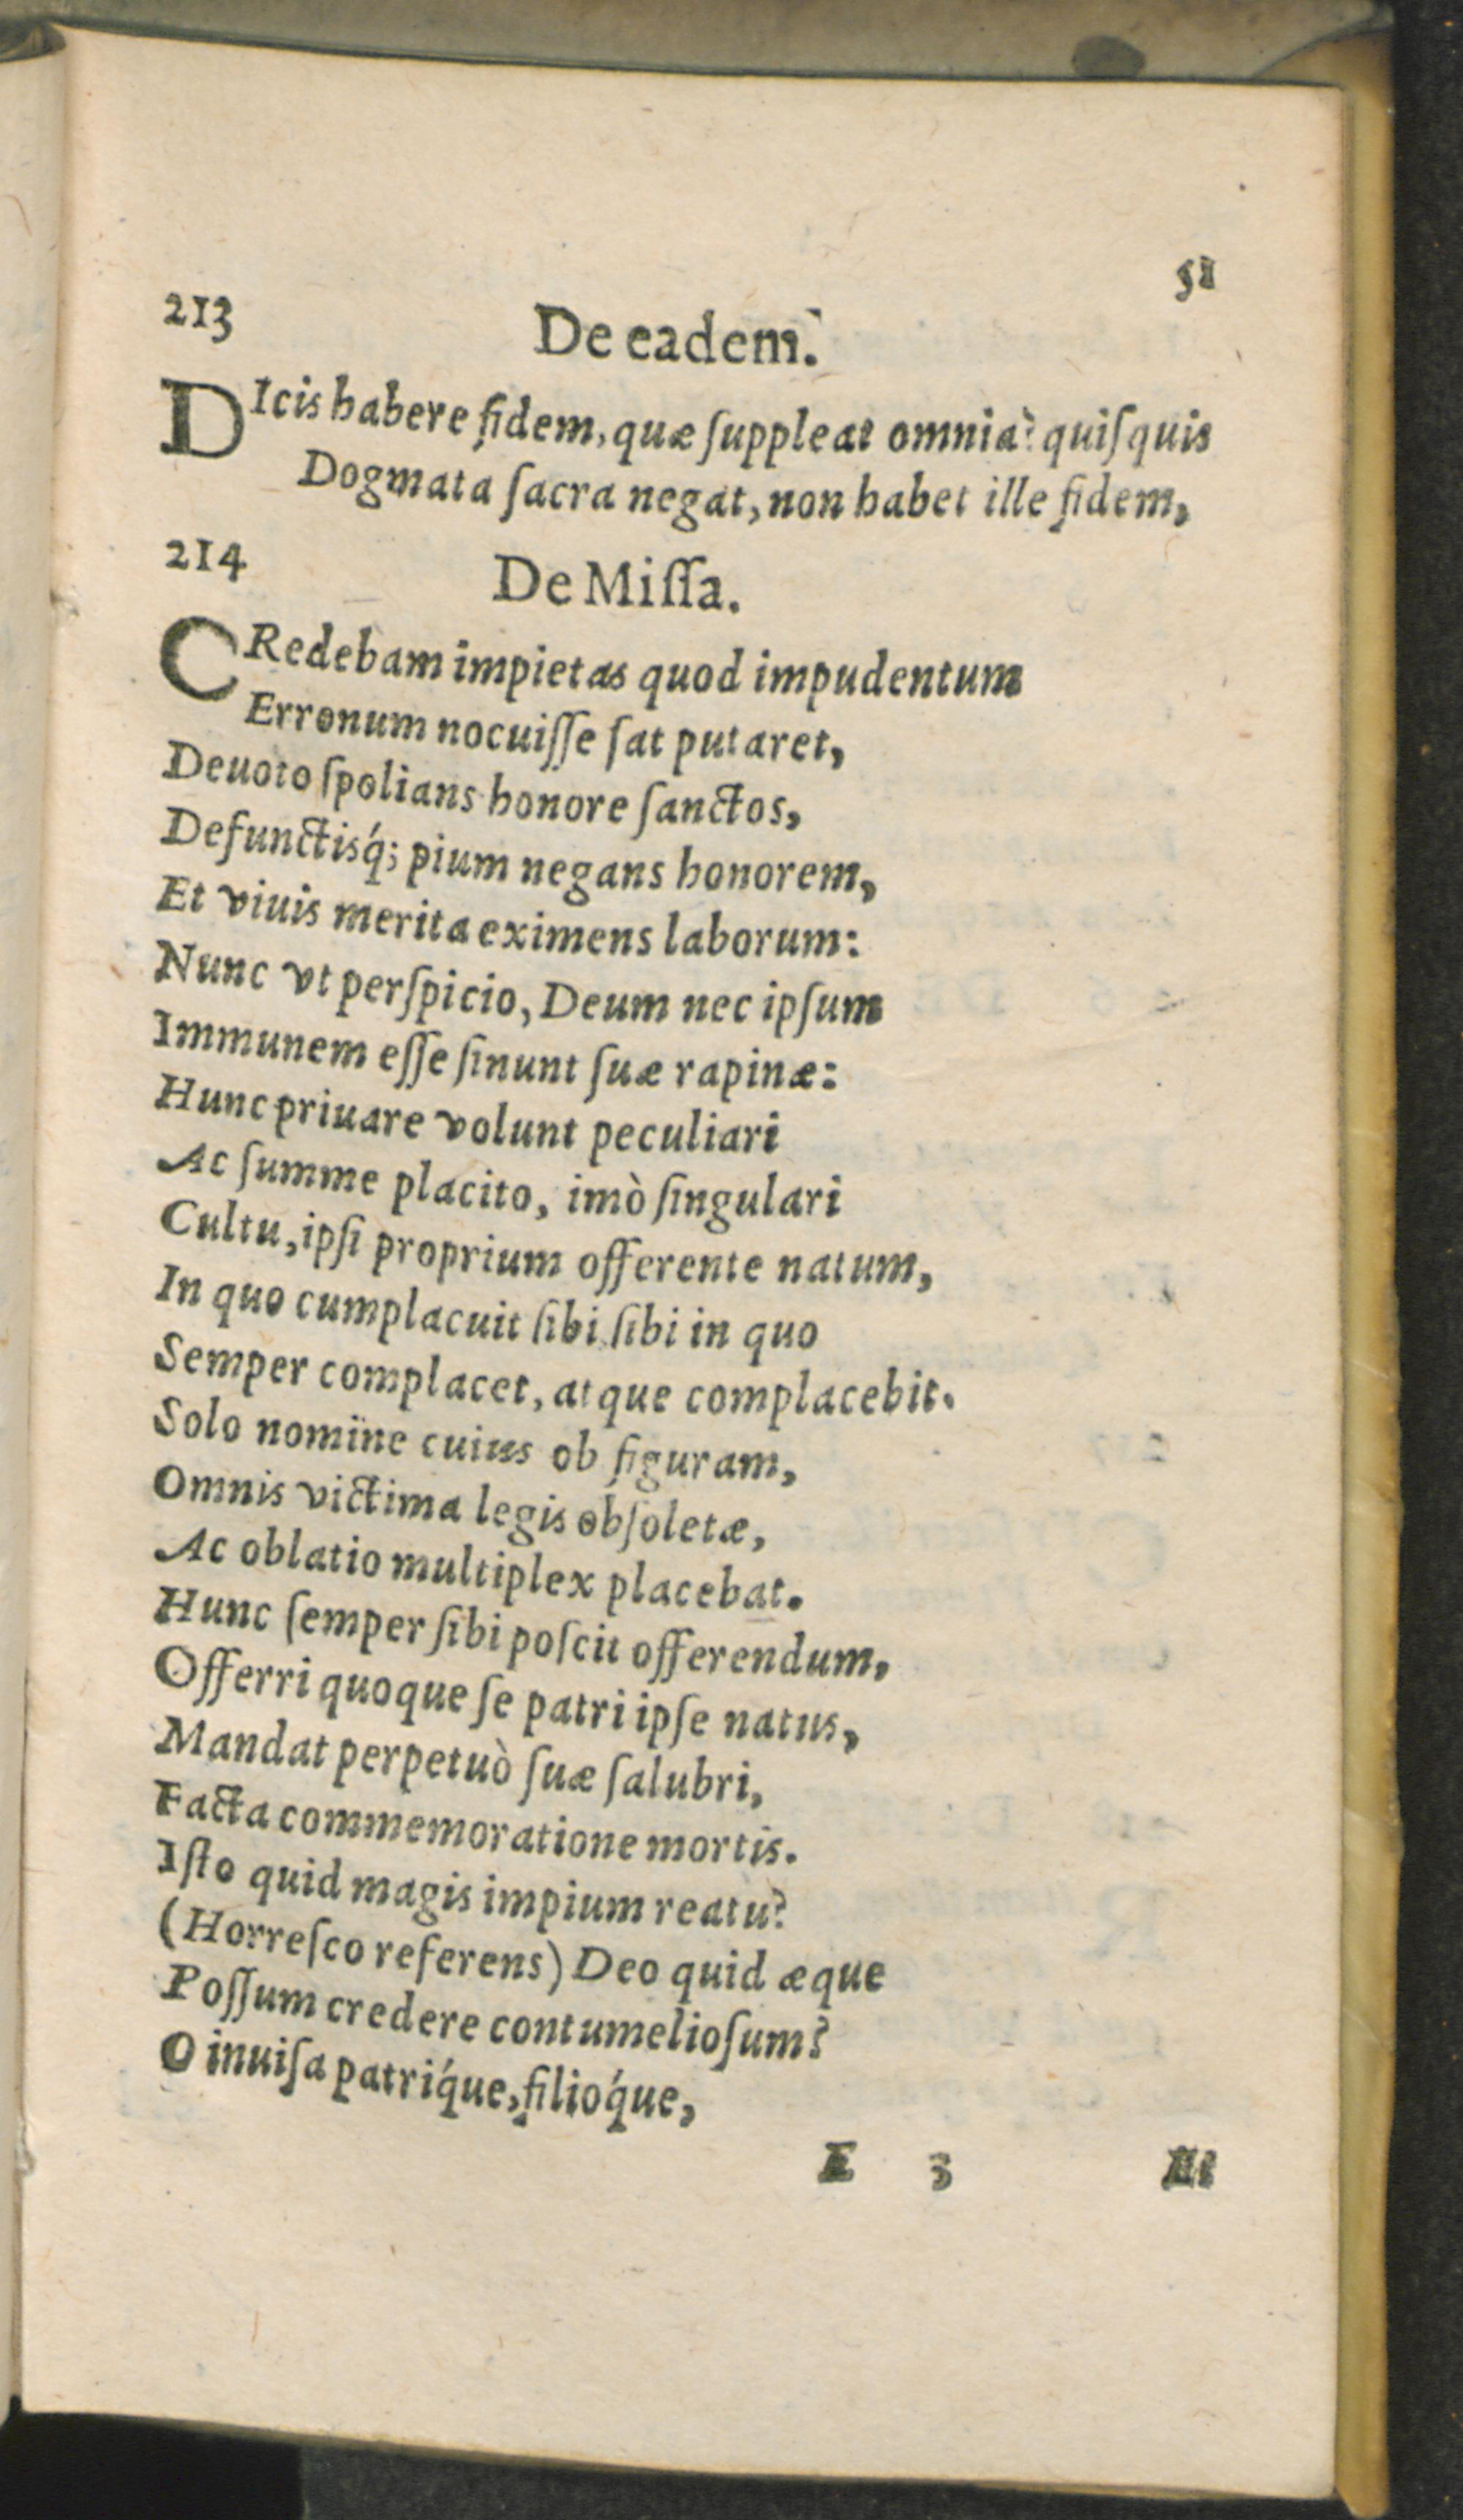 51
213 De eadem.
DIcis habere fidem, quæ ſuppleat omnia? quiſquis
Dogmata ſacra negat, non habet ille fidem,
214 De Miſſa.
CRedebam impietas quod impudentum
Erronum nocuiſſe ſat putaret,
Deuoto ſpolians honore ſanctos,
Defunctisq́; pium negans honorem,
Et viuis merita eximens laborum:
Nunc vt perſpicio, Deum nec ipſum
Immunem eſſe ſinunt ſuæ rapinæ:
Hunc priuare volunt peculiari
Ac ſumme placito, imò ſingulari
Cultu, ipſi proprium offerente natum,
In quo cumplacuit ſibi ſibi in quo
Semper complacet, atque complacebit.
Solo nomine cuius ob figuram,
Omnis victima legis obſoletæ,
Ac oblatio multiplex placebat.
Hunc ſemper ſibi poſcit offerendum,
Offerri quoque ſe patri ipſe natus,
Mandat perpetuò ſuæ ſalubri,
Facta commemoratione mortis.
Iſto quid magis impium reatu?
(Horreſco referens) Deo quid æque
Poſſum credere contumelioſum?
O inuiſa patriq́ue, filioq́ue,
E 3